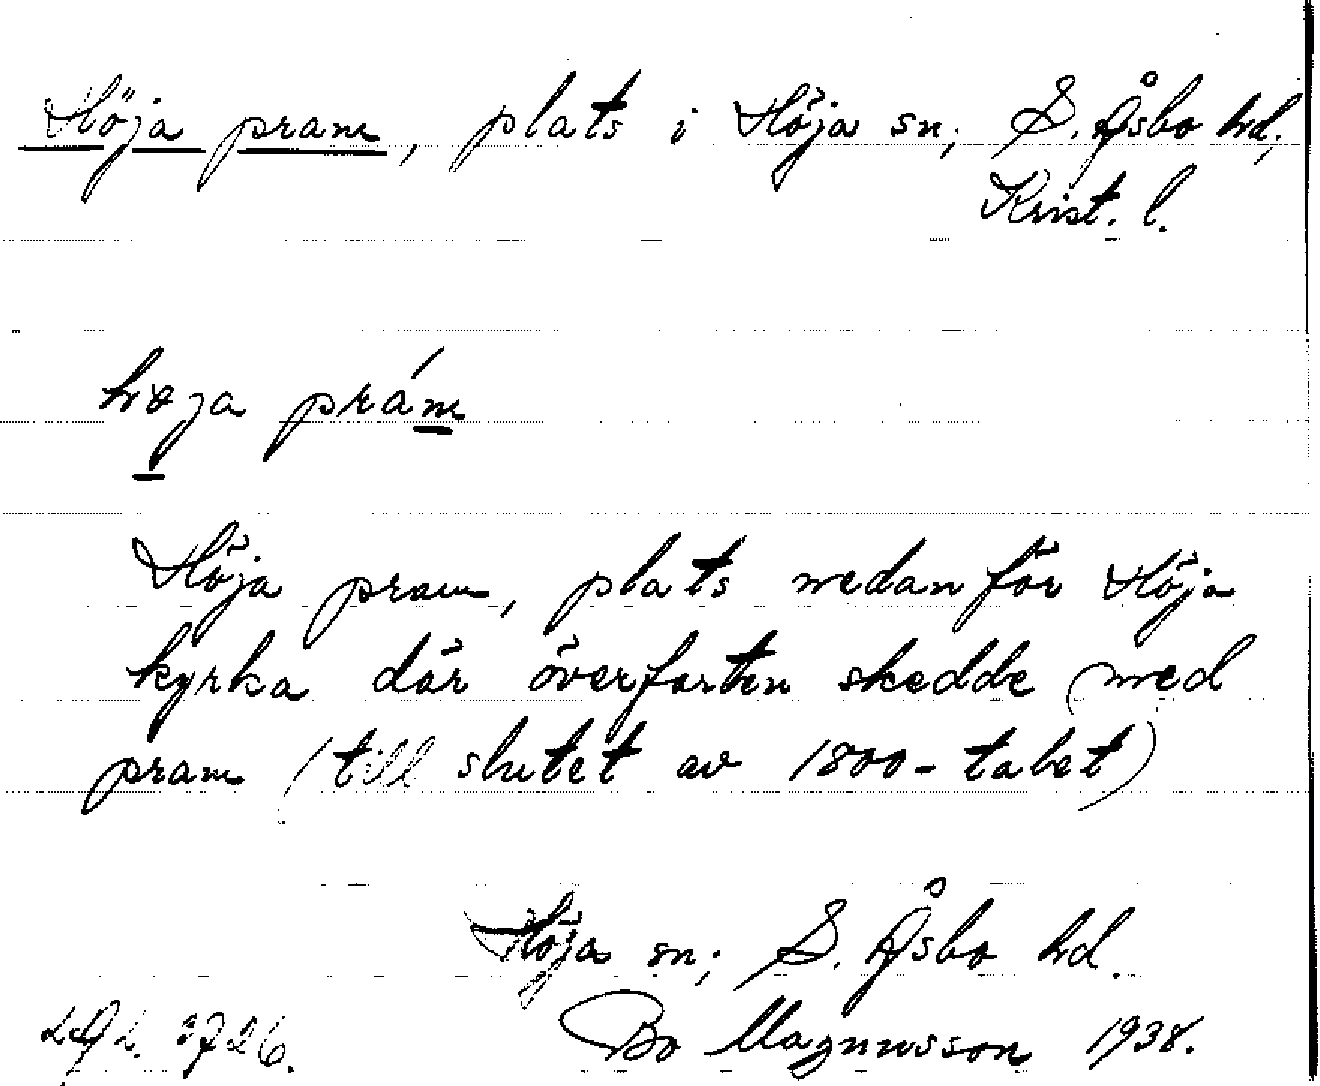 Höja pram, plats i Höja sn; S. Åsbo hd;
Krist. l.
høja prám
Höja pram, plats nedanför Höja
kyrka där överfarten skedde (med
pram (till slutet av 1800-talet)
Höja sn; S. Åsbo hd.
Bo Magnusson 1938.